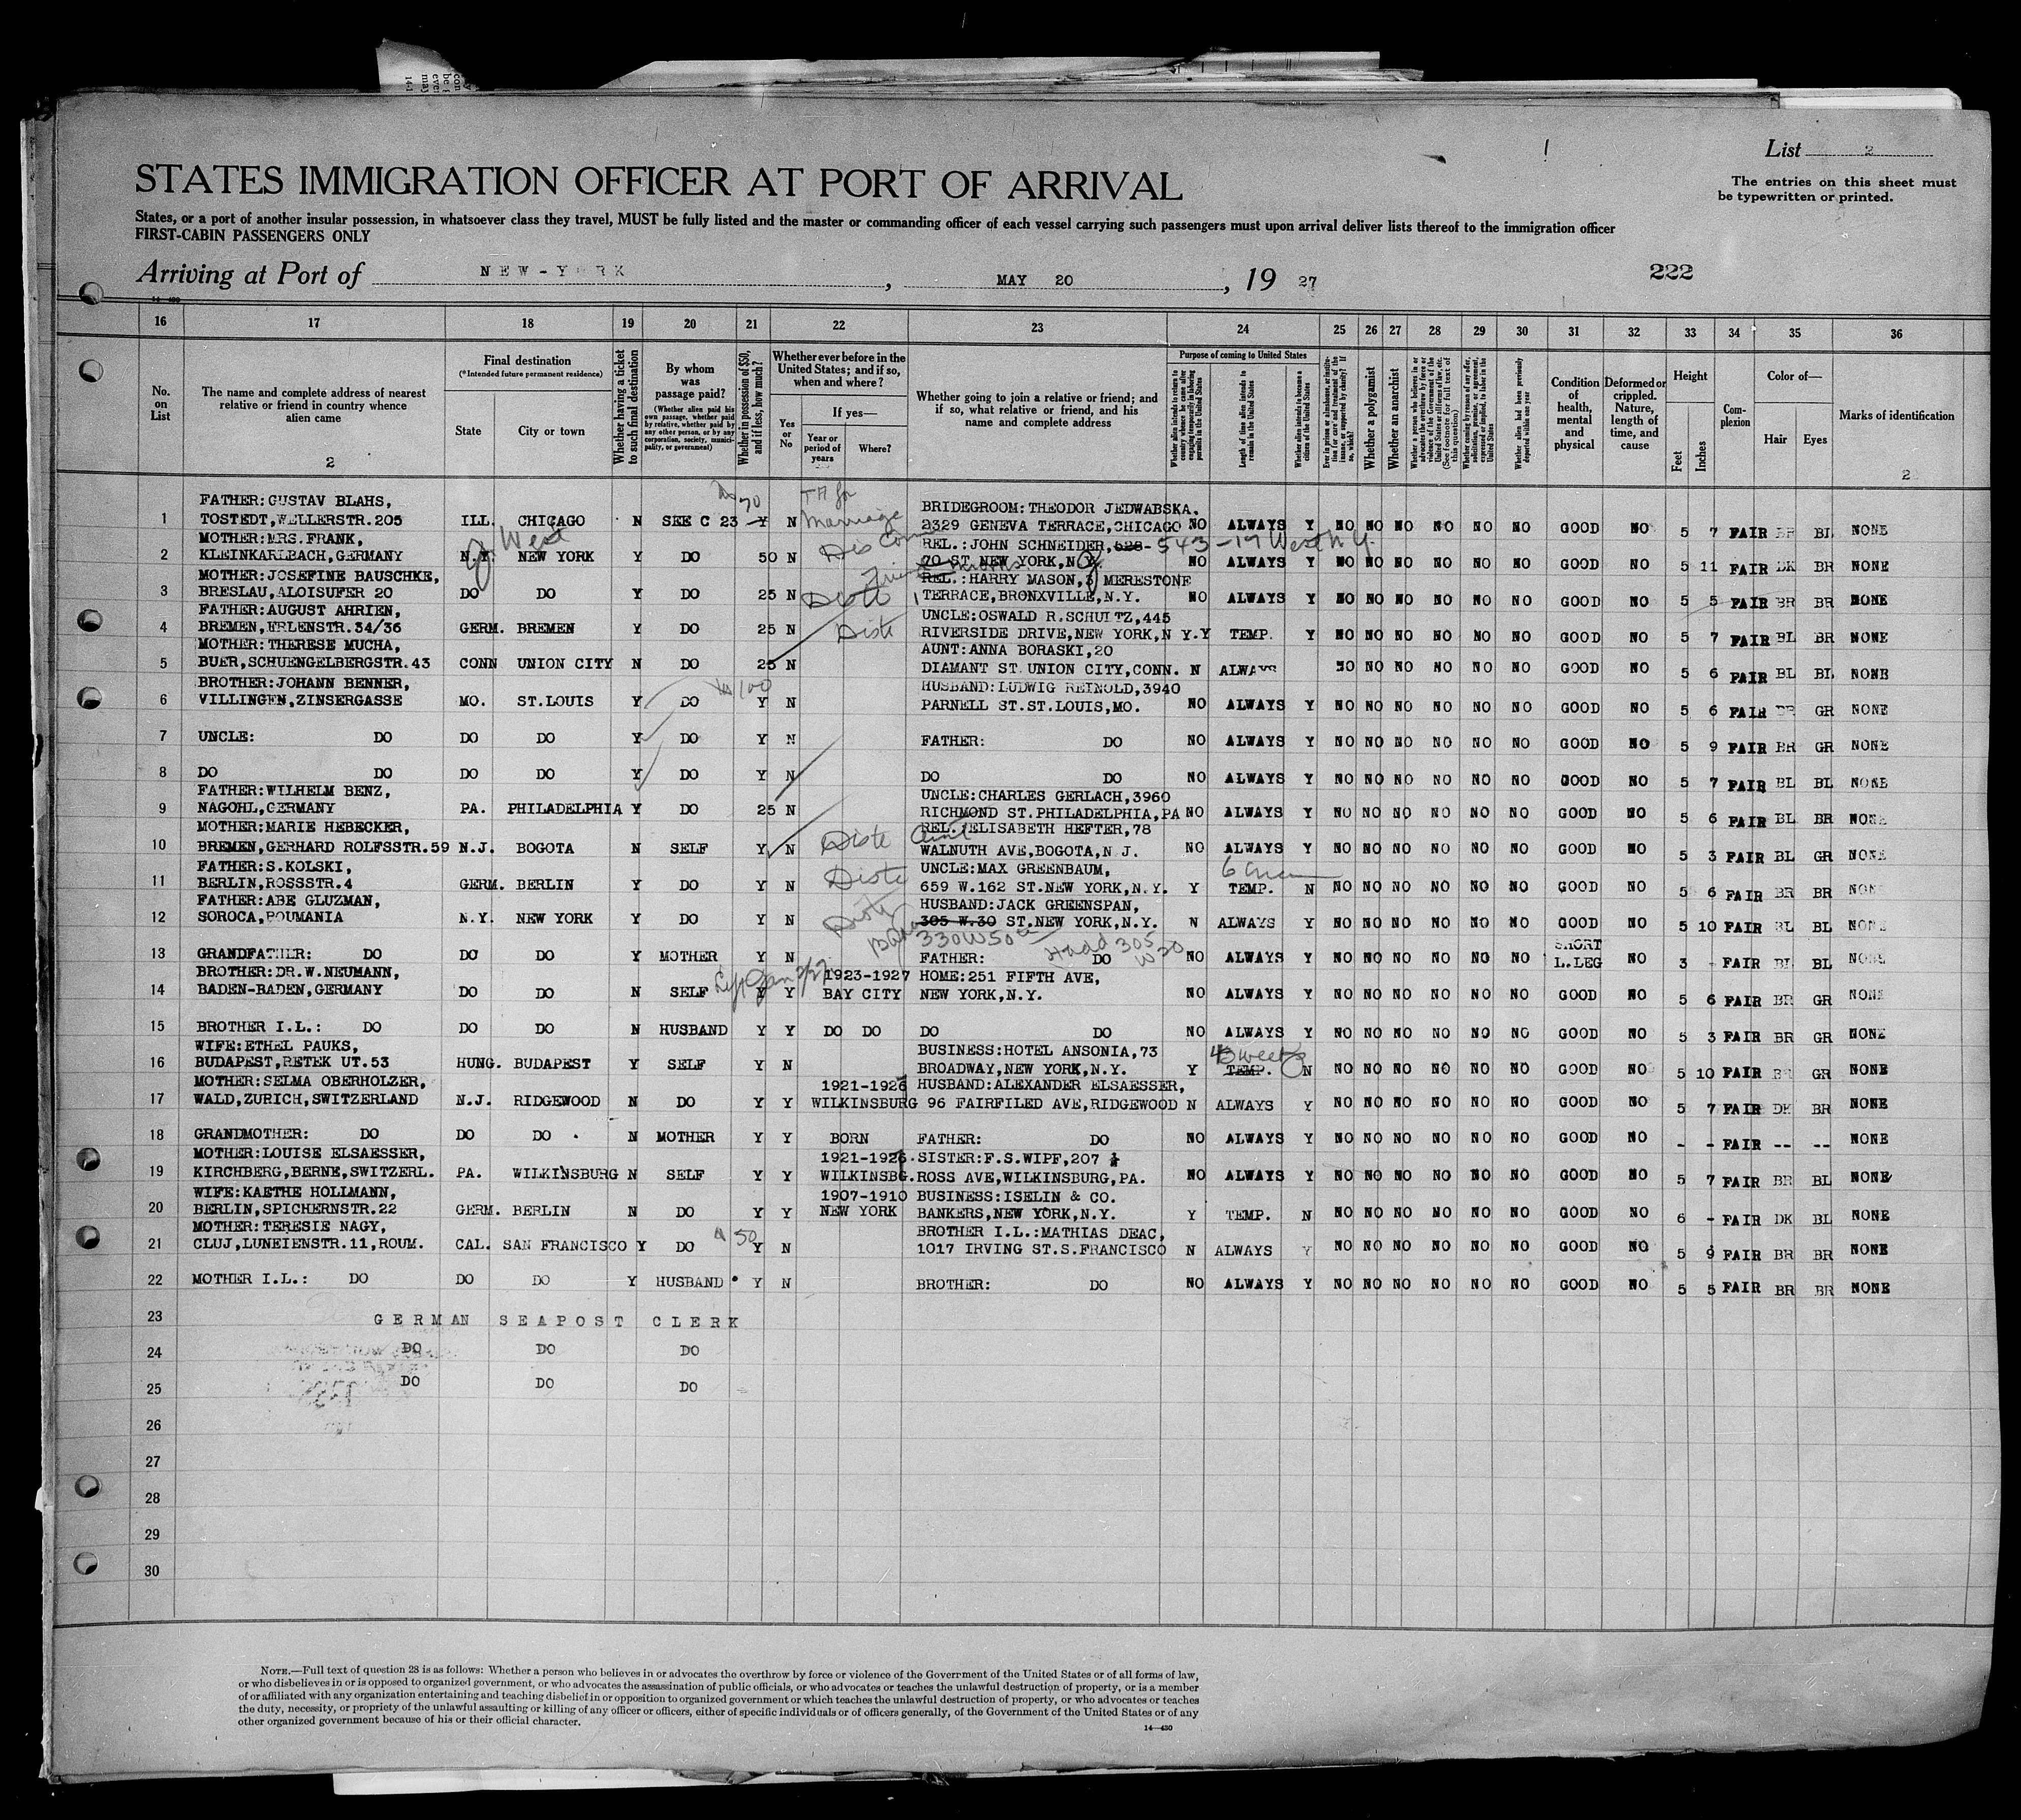 List 2
The entries on this sheet must
be typewritten or printed.
STATES IMMIGRATION OFFICER AT PORT OF ARRIVAL
States, or a port of another insular possession, in whatsoever class they travel, MUST be fully listed and the master or commanding officer of each vessel carrying such passengers must upon arrival deliver lists thereof to the immigration officer
FIRST-CABIN PASSENGERS ONLY
Arriving at Port of NEW-YORK, MAY 20, 19 27
222
16 17 18 19 20 21 22 23 24 25 26 27 28 29 30 31 32 33 34 35 36
No. on List
The name and complete address of nearest relative or friend in country whence alien came
2
Final destination
(*Intended future permanent residence)
State
City or town
Whether having a ticket to such final destination
By whom was passage paid?
(Whether alien paid his own passage, whether paid by relative, whether paid by any other person, or by any corporation, society, municipality, or government)
Whether in possession of $50, and if less, how much?
Whether ever before in the United States; and if so, when and where?
Yes or No
If yes—
Year or period of years
Where?
Whether going to join a relative or friend; and if so, what relative or friend, and his name and complete address
Purpose of coming to United States
Whether alien intends to return to country whence he came after engaging temporarily in laboring pursuits in the United States
Length of time alien intends to remain in the United States
Whether alien intends to become a citizen of the United States
Ever in prison or almshouse, or institution for care and treatment of the insane, or supported by charity? If so, which?
Whether a polygamist
Whether an anarchist
Whether a person who believes in or advocates the overthrow by force or violence of the Government of the United States or all forms of law, etc. (See footnote for full text of this question)
Whether coming by reason of any offer, solicitation, promise, or agreement, expressed or implied, to labor in the United States
Whether alien had been previously deported within one year
Condition of health, mental and physical
Deformed or crippled. Nature, length of time, and cause
Height
Feet
Inches
Complexion
Color of—
Hair
Eyes
Marks of identification
2
FATHER:GUSTAV BLAHS, BRIDEGROOM:THEODOR JEDWABSKA.
1 TOSTEDT,WELLERSTR.205 ILL. CHICAGO N SEE C 23 Y 70 N marriage 2329 GENEVA TERRACE,CHICAGO NO ALWAYS Y NO NO NO NO NO NO GOOD NO 5 7 FAIR BR BL NONE
MOTHER:MRS.FRANK, REL.:JOHN SCHNEIDER,528- 543-19 West N.Y.
2 KLEINKARLBACH,GERMANY N.Y. NEW YORK Y DO 50 N 70 ST.NEW YORK,N.Y. NO ALWAYS Y NO NO NO NO NO NO GOOD NO 5 11 FAIR DK BR NONE
MOTHER:JOSEFINE BAUSCHKE, REL.:HARRY MASON,3 MERESTONE
3 BRESLAU,ALOISUFER 20 DO DO Y DO 25 N TERRACE,BRONXVILLE,N.Y. NO ALWAYS Y NO NO NO NO NO NO GOOD NO 5 5 FAIR BR BR NONE
FATHER:AUGUST AHRIEN, UNCLE:OSWALD R.SCHULTZ,445
4 BREMEN,ERLENSTR.34/36 GERM. BREMEN Y DO 25 N RIVERSIDE DRIVE,NEW YORK,N Y.Y TEMP. Y NO NO NO NO NO NO GOOD NO 5 7 FAIR BL BR NONE
MOTHER:THERESE MUCHA, AUNT:ANNA BORASKI,20
5 BUER,SCHUENGELBERGSTR.43 CONN UNION CITY N DO 25 N DIAMANT ST.UNION CITY,CONN. N ALWAYS NO NO NO NO NO NO GOOD NO 5 6 FAIR BL BL NONE
BROTHER:JOHANN BENNER, 100 HUSBAND:LUDWIG REINOLD,3940
6 VILLINGEN,ZINSERGASSE MO. ST.LOUIS Y DO Y N PARNELL ST.ST.LOUIS,MO. NO ALWAYS Y NO NO NO NO NO NO GOOD NO 5 6 FAIR BR GR NONE
7 UNCLE: DO DO DO Y DO Y N FATHER: DO NO ALWAYS Y NO NO NO NO NO NO GOOD NO 5 9 FAIR BR GR NONE
8 DO DO DO DO Y DO Y N DO DO NO ALWAYS Y NO NO NO NO NO NO GOOD NO 5 7 FAIR BL BL NONE
FATHER:WILHELM BENZ, UNCLE:CHARLES GERLACH,3960
9 NAGOHL,GERMANY PA. PHILADELPHIA Y DO 25 N RICHMOND ST.PHILADELPHIA,PA NO ALWAYS Y NO NO NO NO NO NO GOOD NO 5 6 FAIR BL BR NONE
MOTHER:MARIE HEBECKER, REL.:ELISABETH HEFTER,78
10 BREMEN,GERHARD ROLFSSTR.59 N.J. BOGOTA N SELF Y N Aunt WALNUTH AVE,BOGOTA,N J. NO ALWAYS Y NO NO NO NO NO NO GOOD NO 5 3 FAIR BL GR NONE
FATHER:S.KOLSKI, UNCLE:MAX GREENBAUM,
11 BERLIN,ROSSSTR.4 GERM. BERLIN Y DO Y N 659 W.162 ST.NEW YORK,N.Y. Y TEMP. N NO NO NO NO NO NO GOOD NO 5 6 FAIR BR BR NONE
FATHER:ABE GLUZMAN, HUSBAND:JACK GREENSPAN,
12 SOROCA,ROUMANIA N.Y. NEW YORK Y DO Y N 305 W.30 ST.NEW YORK,N.Y. N ALWAYS Y NO NO NO NO NO NO GOOD NO 5 10 FAIR BL BL NONE
330 W 50
13 GRANDFATHER: DO DO DO Y MOTHER Y N FATHER: DO NO ALWAYS Y NO NO NO NO NO NO SHORT L.LEG NO 3 - FAIR BL BL NONE
BROTHER:DR.W.NEUMANN, 1923-1927 HOME:251 FIFTH AVE,
14 BADEN-BADEN,GERMANY DO DO N SELF Y Y BAY CITY NEW YORK,N.Y. NO ALWAYS Y NO NO NO NO NO NO GOOD NO 5 6 FAIR BR GR NONE
15 BROTHER I.L.: DO DO DO N HUSBAND Y Y DO DO DO DO NO ALWAYS Y NO NO NO NO NO NO GOOD NO 5 3 FAIR BR GR NONE
WIFE:ETHEL PAUKS, BUSINESS:HOTEL ANSONIA,73
16 BUDAPEST,RETEK UT.53 HUNG. BUDAPEST Y SELF Y N BROADWAY,NEW YORK,N.Y. Y TEMP. N NO NO NO NO NO NO GOOD NO 5 10 FAIR BR GR NONE
MOTHER:SELMA OBERHOLZER, 1921-1926 HUSBAND:ALEXANDER ELSAESSER,
17 WALD,ZURICH,SWITZERLAND N.J. RIDGEWOOD N DO Y Y WILKINSBURG 96 FAIRFILED AVE,RIDGEWOOD N ALWAYS Y NO NO NO NO NO NO GOOD NO 5 7 FAIR DK BR NONE
18 GRANDMOTHER: DO DO DO N MOTHER Y Y BORN FATHER: DO NO ALWAYS Y NO NO NO NO NO NO GOOD NO - - FAIR -- -- NONE
MOTHER:LOUISE ELSAESSER, 1921-1926 SISTER:F.S.WIPF,207 ½
19 KIRCHBERG,BERNE,SWITZERL. PA. WILKINSBURG N SELF Y Y WILKINSBG. ROSS AVE,WILKINSBURG,PA. NO ALWAYS Y NO NO NO NO NO NO GOOD NO 5 7 FAIR BR BL NONE
WIFE:KAETHE HOLLMANN, 1907-1910 BUSINESS:ISELIN & CO.
20 BERLIN,SPICHERNSTR.22 GERM. BERLIN N DO Y Y NEW YORK BANKERS,NEW YORK,N.Y. Y TEMP. N NO NO NO NO NO NO GOOD NO 6 - FAIR DK BL NONE
MOTHER:TERESIE NAGY, 50 BROTHER I.L.:MATHIAS DEAC,
21 CLUJ,LUNEIENSTR.11,ROUM. CAL. SAN FRANCISCO Y DO Y N 1017 IRVING ST.S.FRANCISCO N ALWAYS Y NO NO NO NO NO NO GOOD NO 5 9 FAIR BR BR NONE
22 MOTHER I.L.: DO DO DO Y HUSBAND Y N BROTHER: DO NO ALWAYS Y NO NO NO NO NO NO GOOD NO 5 5 FAIR BR BR NONE
23 GERMAN SEAPOST CLERK
24 DO DO DO
25 DO DO DO
26
27
28
29
30
NOTE.—Full text of question 28 is as follows: Whether a person who believes in or advocates the overthrow by force or violence of the Government of the United States or of all forms of law,
or who disbelieves in or is opposed to organized government, or who advocates the assassination of public officials, or who advocates or teaches the unlawful destruction of property, or is a member
of or affiliated with any organization entertaining and teaching disbelief in or opposition to organized government or which teaches the unlawful destruction of property, or who advocates or teaches
the duty, necessity, or propriety of the unlawful assaulting or killing of any officer or officers, either of specific individuals or of officers generally, of the Government of the United States or of any
other organized government because of his or their official character.
14—430